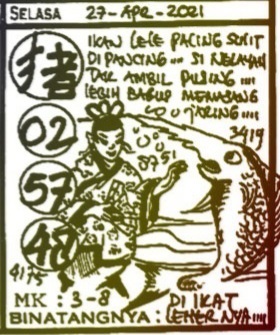 SELASA 27-APR-2021
猪
IKAN LELE PACING SULIT
DI PANCING .... SI NELAYAN
TAK AMBIL PUSING ....
LEBIH BAGUS MEMASANG
JARING ....
3419
8751
02
57
48
4175
MK : 3-8
DI IKAT
BINATANGNYA : LEHERNYA ....